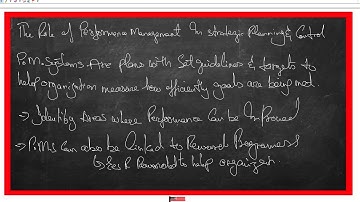 The Role of Performance Management In Strategic Planning & Control
P.M. Systems Are Plans with Set guidelines & targets to
help organisation measure how efficiently goals are being met.
→ Identify Areas where Performance Can be Improved
→ P.M.S Can also be linked to Reward Programmes
↳ Ees R Rewarded to help organizan.